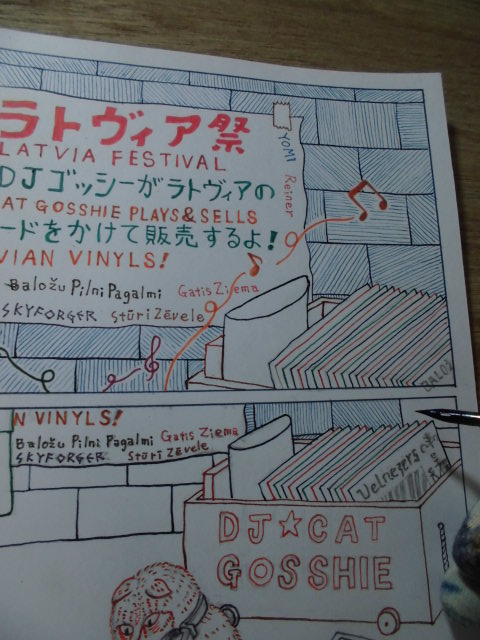 ラトヴィア祭
LATVIA FESTIVAL
DJゴッシーがラトヴィアの
AT GOSSHIE PLAYS&SELLS
ードをかけて販売するよ!
VIAN VINYLS!
Baložu Pilni Pagalmi Gatis Ziema
SKYFORGER Stūri Zēvele
YOMI Reiner
BALOŽ
N VINYLS!
Baložu Pilni Pagalmi Gatis Ziema
SKYFORGER Stūri Zēvele
Velnezers
DJ☆CAT
GOSSHIE